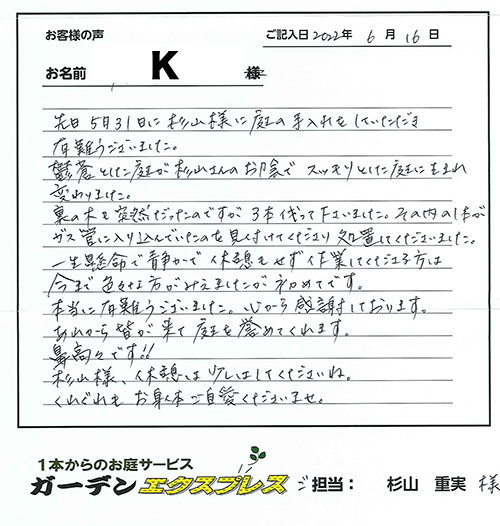 お客様の声
ご記入日 2022年 6月 16日
お名前 K 様
先日5月31日に杉山様に庭の手入れをしていただき
有難うございました。
鬱蒼とした庭が杉山さんのお陰でスッキリとした庭に生まれ
変わりました。
裏の木も突然だったのですが3本伐って下さいました。その内の1本が
ガス管に入り込んでいたのを見付けてくださり処置してくださいました。
一生懸命で静かで休憩もせず作業してくださる方は
今まで色々な方がみえましたが初めてです。
本当に有難うございました。心から感謝しております。
あれから皆が来て庭を誉めてくれます。
鼻高々です!!
杉山様、休憩は少しはしてくださいね。
くれぐれもお身体ご自愛くださいませ。
1本からのお庭サービス
ガーデンエクスプレス ご担当: 杉山 重実 様